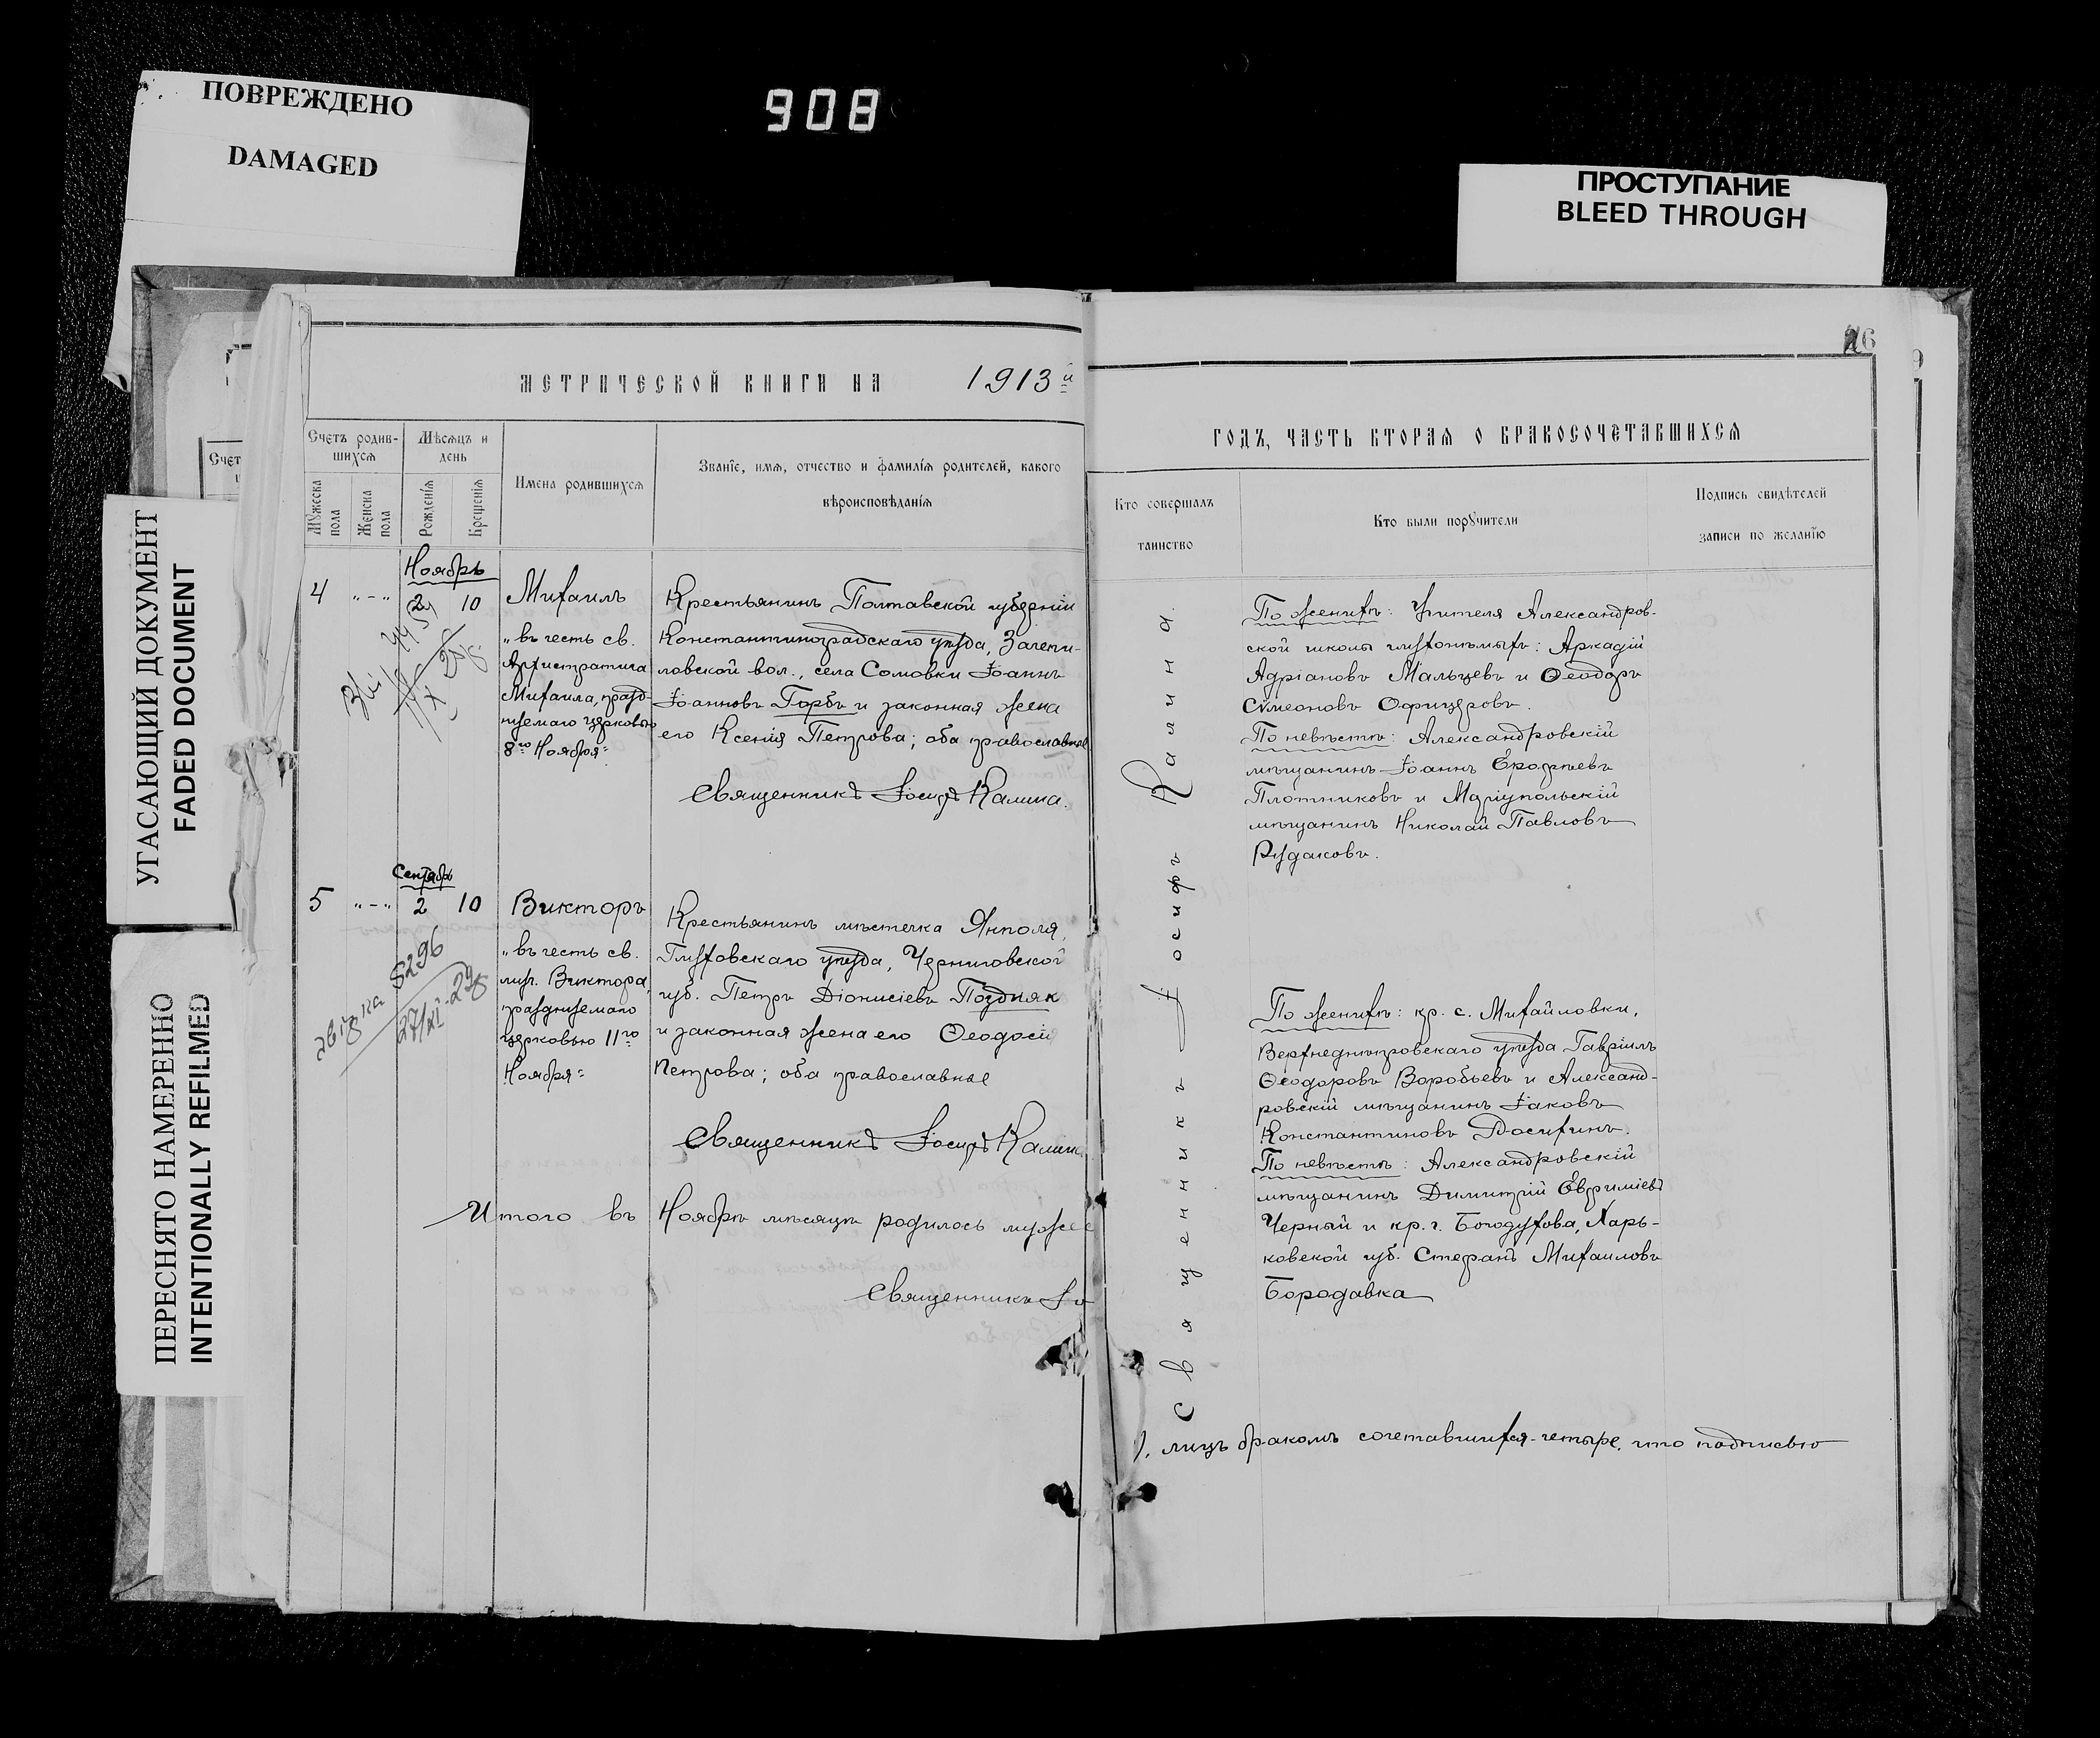 ПОВРЕЖДЕНО
DAMAGED
908
ПРОСТУПАНИЕ
BLEED THROUGH
УГАСАЮЩИЙ ДОКУМЕНТ
FADED DOCUMENT
ПЕРЕСНЯТО НАМЕРЕННО
INTENTIONALLY REFILMED
Счет
МЕТРИЧЕСКОЙ КНИГИ НА 1913й
Счетъ родив-
шихся
Мѣсяцъ и
день
Мужеска
пола
Женска
пола
Рожденія
Крещенія
Имена родившихся
Званіе, имя, отчество и фамилія родителей, какого
вѣроисповѣданія
Ноябрь
4 "-" 2 10 Михаилъ
"въ честь св.
Архистратига
Михаила, празд-
нуемаго церковью
8го Ноября"
Крестьянинъ Полтавской губерніи
Константиноградскаго уѣзда, Зачепи-
ловской вол., села Сомовки Іоаннъ
Іоанновъ Горбъ и законная жена
его Ксенія Петрова; оба православные
Священникъ Іосифъ Калина.
Сентябрь
5 "-" 2 10 Викторъ
"въ честь св.
муч. Виктора,
празднуемаго
церковью 11го
Ноября"
5296
27/XI-29
Крестьянинъ мѣстечка Янполя,
Глуховскаго уѣзда, Черниговской
губ. Петръ Діонисіевъ Поздняк
и законная жена его Ѳеодосія
Петрова; оба православные
Священникъ Іосифъ Калина
Итого въ Ноябрѣ мѣсяцѣ родилось мужес
Священникъ Іо
6
ГОДЪ, ЧАСТЬ ВТОРАЯ О БРАКОСОЧЕТАВШИХСЯ
Кто совершалъ
таинство
Кто были поручители
Подпись свидѣтелей
записи по желанію
Священникъ Іосифъ Калина.
По женихѣ: Учителя Александров-
ской школы глухонѣмыхъ: Аркадій
Адріановъ Мальцевъ и Ѳеодоръ
Сѵмеоновъ Офицеровъ.
По невѣстѣ: Александровскій
мѣщанинъ Іоаннъ Ерофѣевъ
Плотниковъ и Маріупольскій
мѣщанинъ Николай Павловъ
Рудаковъ.
По женихѣ: кр. с. Михайловки,
Верхнеднѣпровскаго уѣзда Гавріилъ
Ѳеодоровъ Воробьевъ и Александ-
ровскій мѣщанинъ Іаковъ
Константиновъ Досихинъ.
По невѣстѣ: Александровскій
мѣщанинъ Димитрій Евфиміевъ
Черный и кр. г. Богодухова, Харь-
ковской губ. Стефанъ Михаиловъ
Бородавка
), лицъ бракомъ сочетавшихся - четыре, что подписью